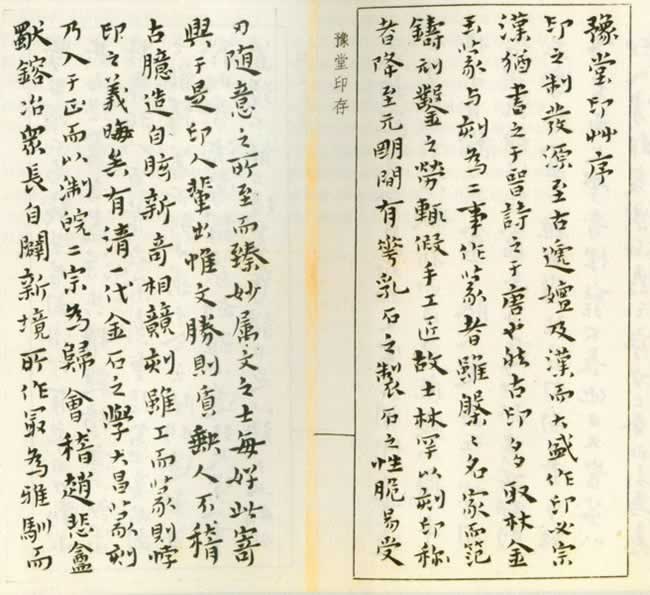 豫堂印艸序
印之制發源至古遞嬗及漢而大盛作印必宗
漢猶書之于晉詩之于唐也然古印多取材金
玉篆与刻為二事作篆者雖槃〻名家而范
鑄刓鑿之勞輒假手工匠故士林罕以刻印称
者降至元明間有乳石之製石之性脆易受
豫堂印存
刃隨意之所至而臻妙属文之士每好此寄
興于是印人輩出惟文勝則質人不稽
古臆造自眩新奇相競刻雖工而篆則悖
印之義晦矣有清一代金石之學大昌篆刻
乃入于正而以浙皖二宗為歸會稽趙悲盦
鎔冶衆長自闢新境所作最為雅馴而